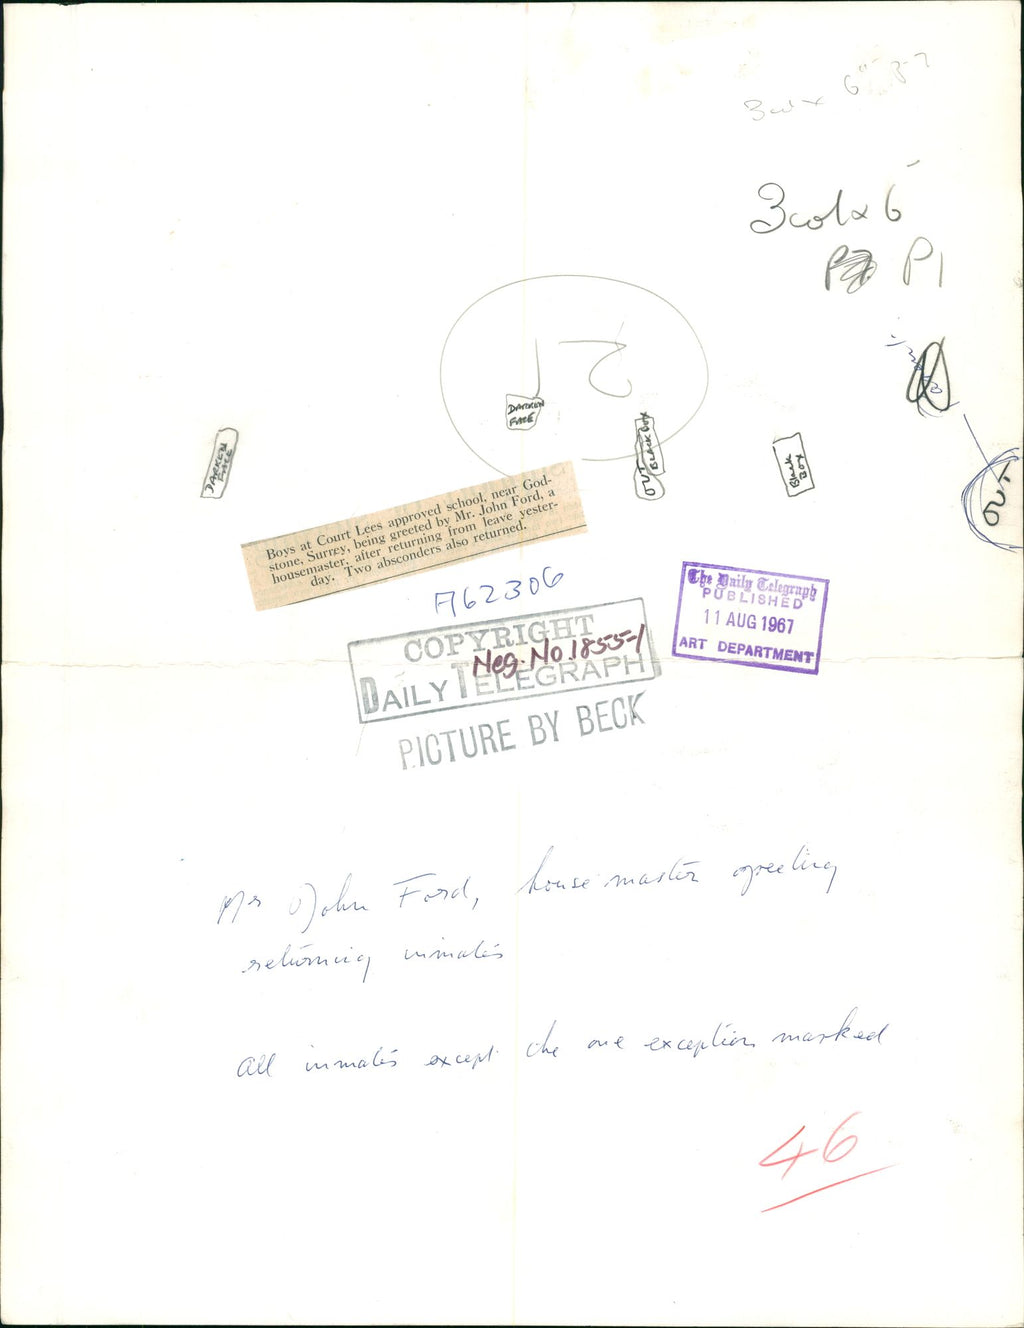 3 col x 6"
3 col x 6
P1
DARKEN
FACE
DARKEN
FACE
OUT
BLACK BOX
Black
BOX
OUT
Boys at Court Lees approved school, near God-
stone, Surrey, being greeted by Mr. John Ford, a
housemaster, after returning from leave yester-
day. Two absconders also returned.
A62306
The Daily Telegraph
PUBLISHED
11 AUG 1967
ART DEPARTMENT
COPYRIGHT
Neg. No 18555-1
DAILY TELEGRAPH
PICTURE BY BECK
Mr John Ford, house master greeting
returning inmates
All inmates except the one exception marked
46